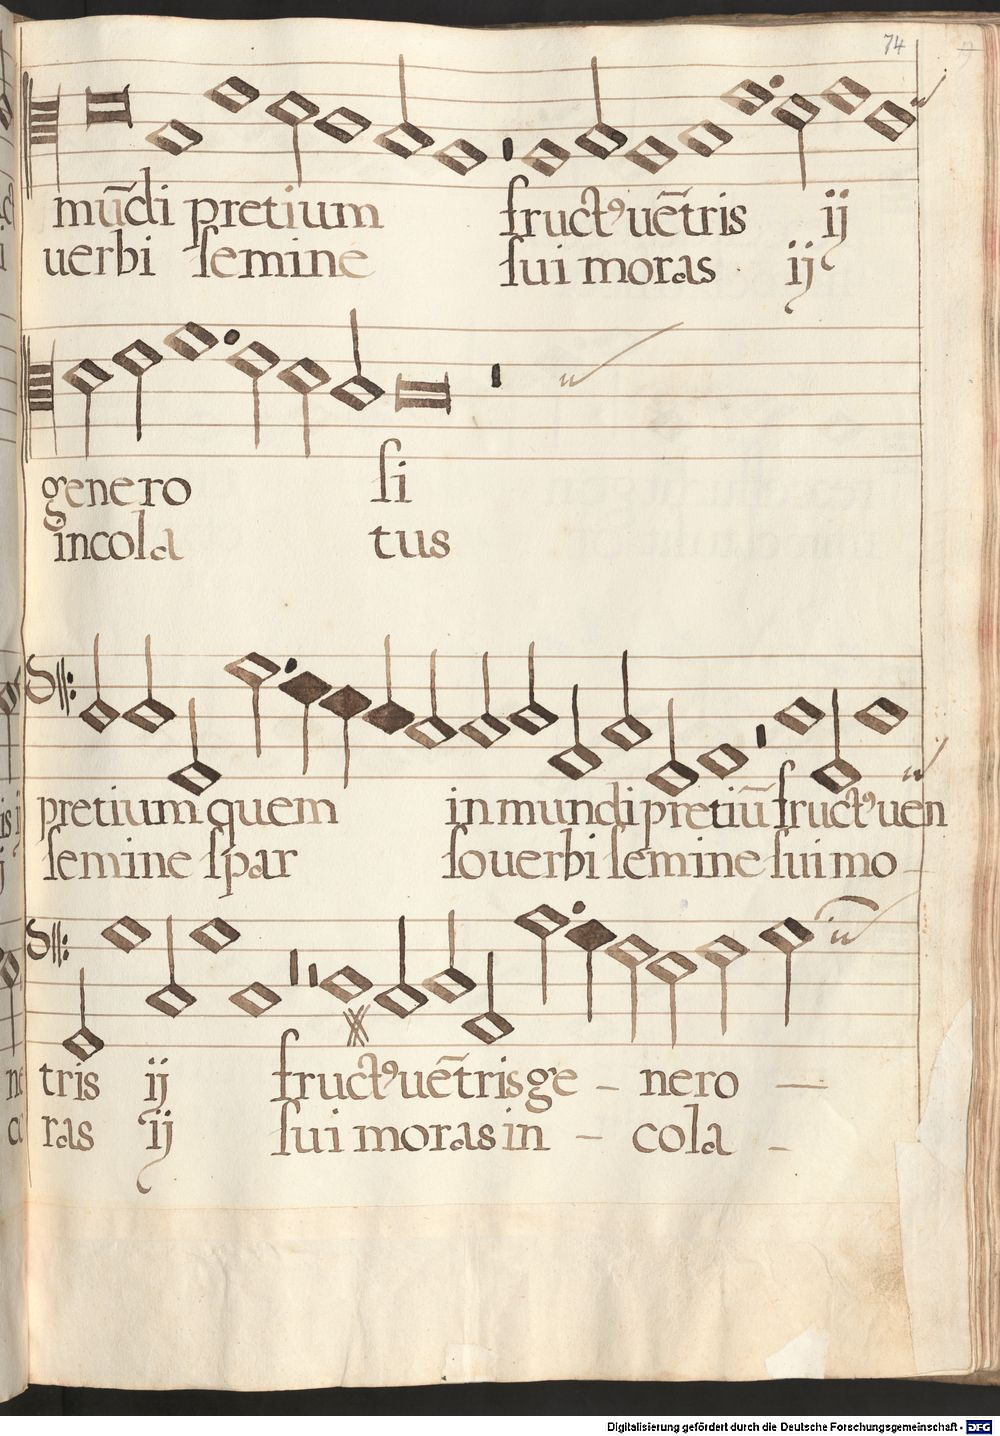 74
mūdi pretium fructꝰ uētris ij
uerbi semine sui moras ij
genero si
incola tus
pretium quem in mundi pretiū fructꝰ uen
semine spar so uerbi semine sui mo
tris ij fructꝰ uētris ge - nero -
ras ij sui moras in - cola -
Digitalisierung gefördert durch die Deutsche Forschungsgemeinschaft - DFG